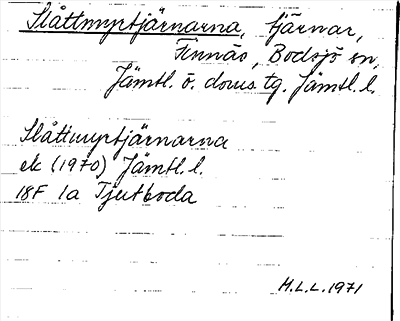 Slåttmyrtjärnarna, tjärnar,
Finnäs, Bodsjö sn,
Jämtl. ö. doms. tg. Jämtl. l.
Slåttmyrtjärnarna
ek (1970) Jämtl. l.
18F 1a Tjutboda
M.L.L. 1971